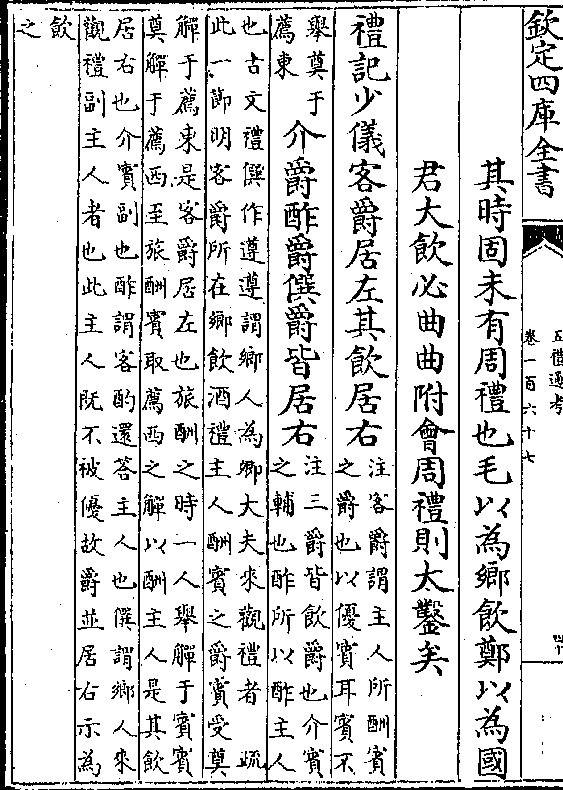 欽定四庫全書
五禮通考
卷一百六十七
其時固未有周禮也毛以為鄉飲鄭以為國
君大飲必曲曲附會周禮則太鑿矣
禮記少儀客爵居左其飲居右
注客爵謂主人所酬賓
之爵也以優賓耳賓不
舉奠于
薦東
介爵酢爵僎爵皆居右
注三爵皆飲爵也介賓
之輔也酢所以酢主人
也古文禮僎作遵遵謂鄉人為卿大夫來觀禮者 疏
此一節明客爵所在鄉飲酒禮主人酬賓之爵賓受奠
觶于薦東是客爵居左也旅酬之時一人舉觶于賓賓
奠觶于薦西至旅酬賓取薦西之觶以酬主人是其飲
居右也介賓副也酢謂客酌還答主人也僎謂鄉人來
觀禮副主人者也此主人既不被優故爵並居右示為
飲
之